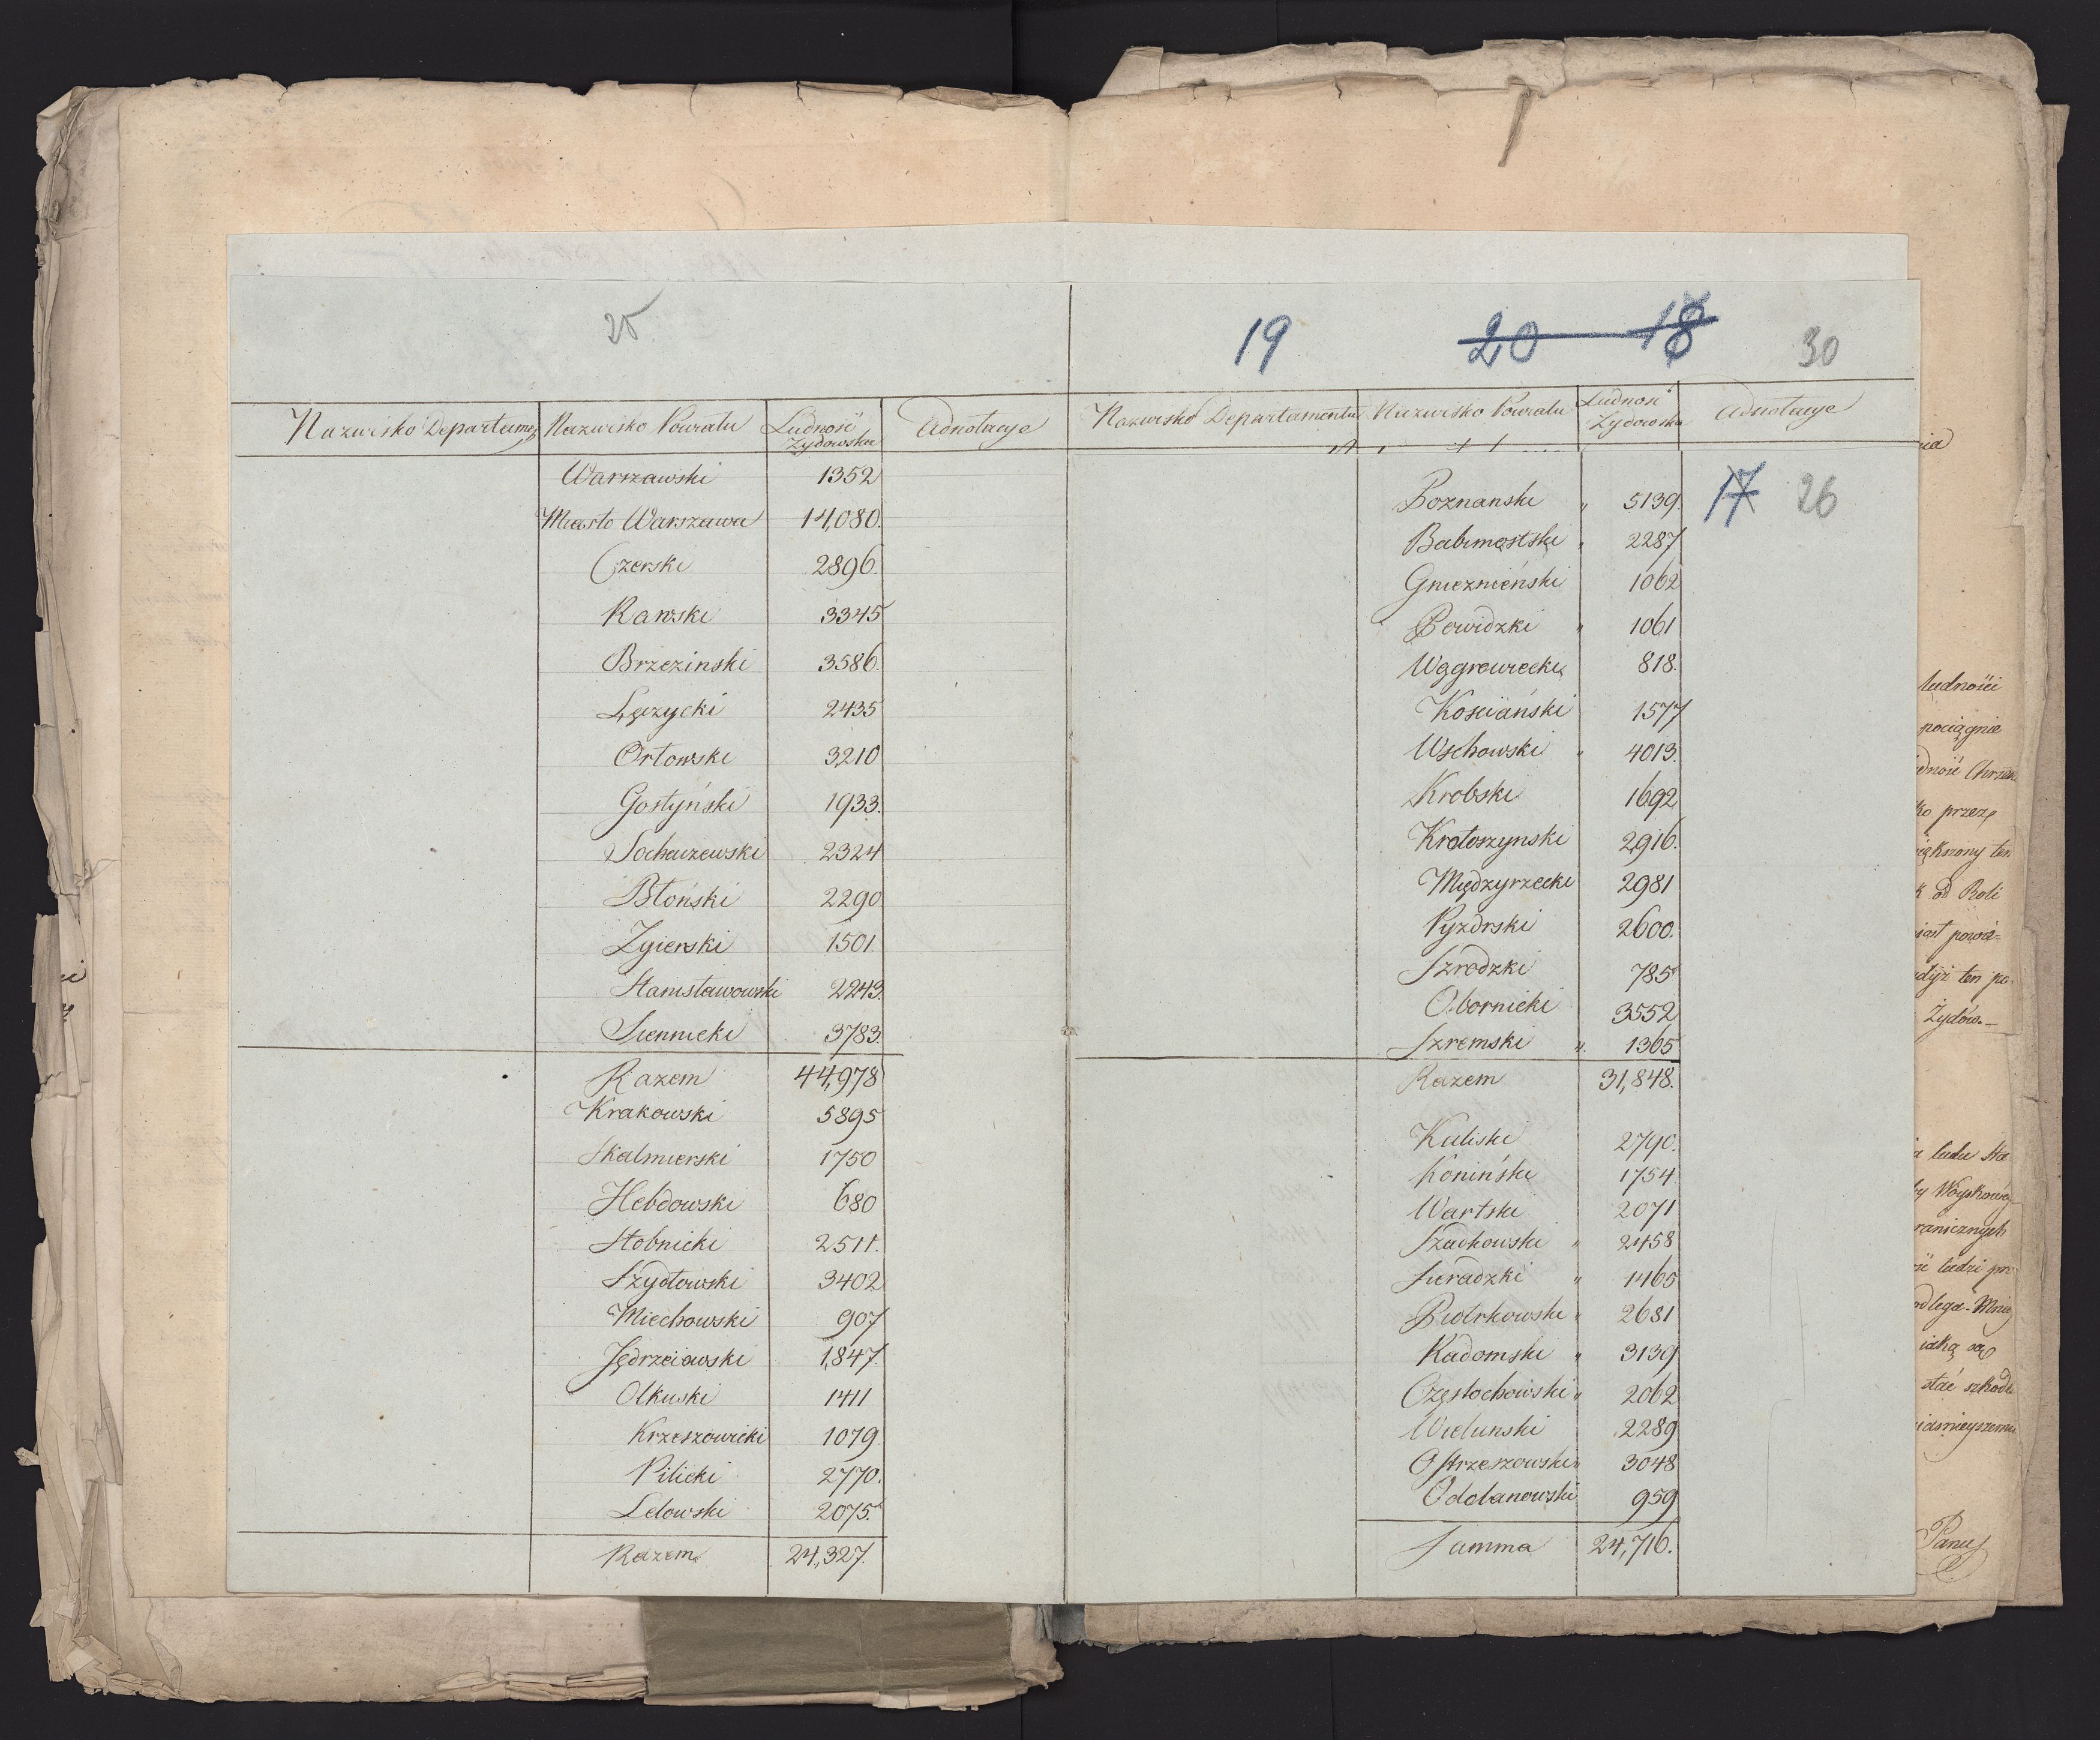 25
Nazwisko Departamen Nazwisko Powiatu Ludność Żydowska Adnotacye
Warszawski 1352
Miasto Warszawa 14,080.
Czerski 2896.
Rawski 3345
Brzezinski 3586.
Łęczycki 2435
Orłowski 3210
Gostyński 1933.
Sochaczewski 2324
Błoński 2290
Zgierski 1501.
Stanisławowski 2243.
Siennicki 3783.
Razem 44,978
Krakowski 5895
Skalmierski 1750
Hebdowski 680
Stobnicki 2511.
Szydłowski 3402
Miechowski 907
Jędrzeiowski 1,847.
Olkuski 1411
Krzeszowicki 1079
Pilicki 2770.
Lelowski 2075.
Razem 24,327.
19 20 18 30
Nazwisko Departamentu Nazwisko Powiatu Ludność Żydowska Adnotacye
17 26
Poznanski " 5139.
Babimostski " 2287
Gnieznieński 1062
Powidzki " 1061
Wągrowiecki 818.
Kosciański 1577
Wschowski " 4013.
Krobski 1692
Krotoszynski 2916.
Międzyrzecki 2981
Pyzdrski 2600.
Szrodzki 785
Obornicki 3552
Szremski " 1365
Razem 31,848.
Kaliski 2790.
Koniński 1754
Wartski 2071
Szadkowski " 2458
Sieradzki " 1465
Piotrkowski " 2681
Radomski " 3139
Częstochowski " 2062
Wielunski 2289
Ostrzeszowski " 3048
Odolanowski 959
Summa 24,716.
ludności
pociągnie
ko przez
k od Roli
Żydów.
Panu